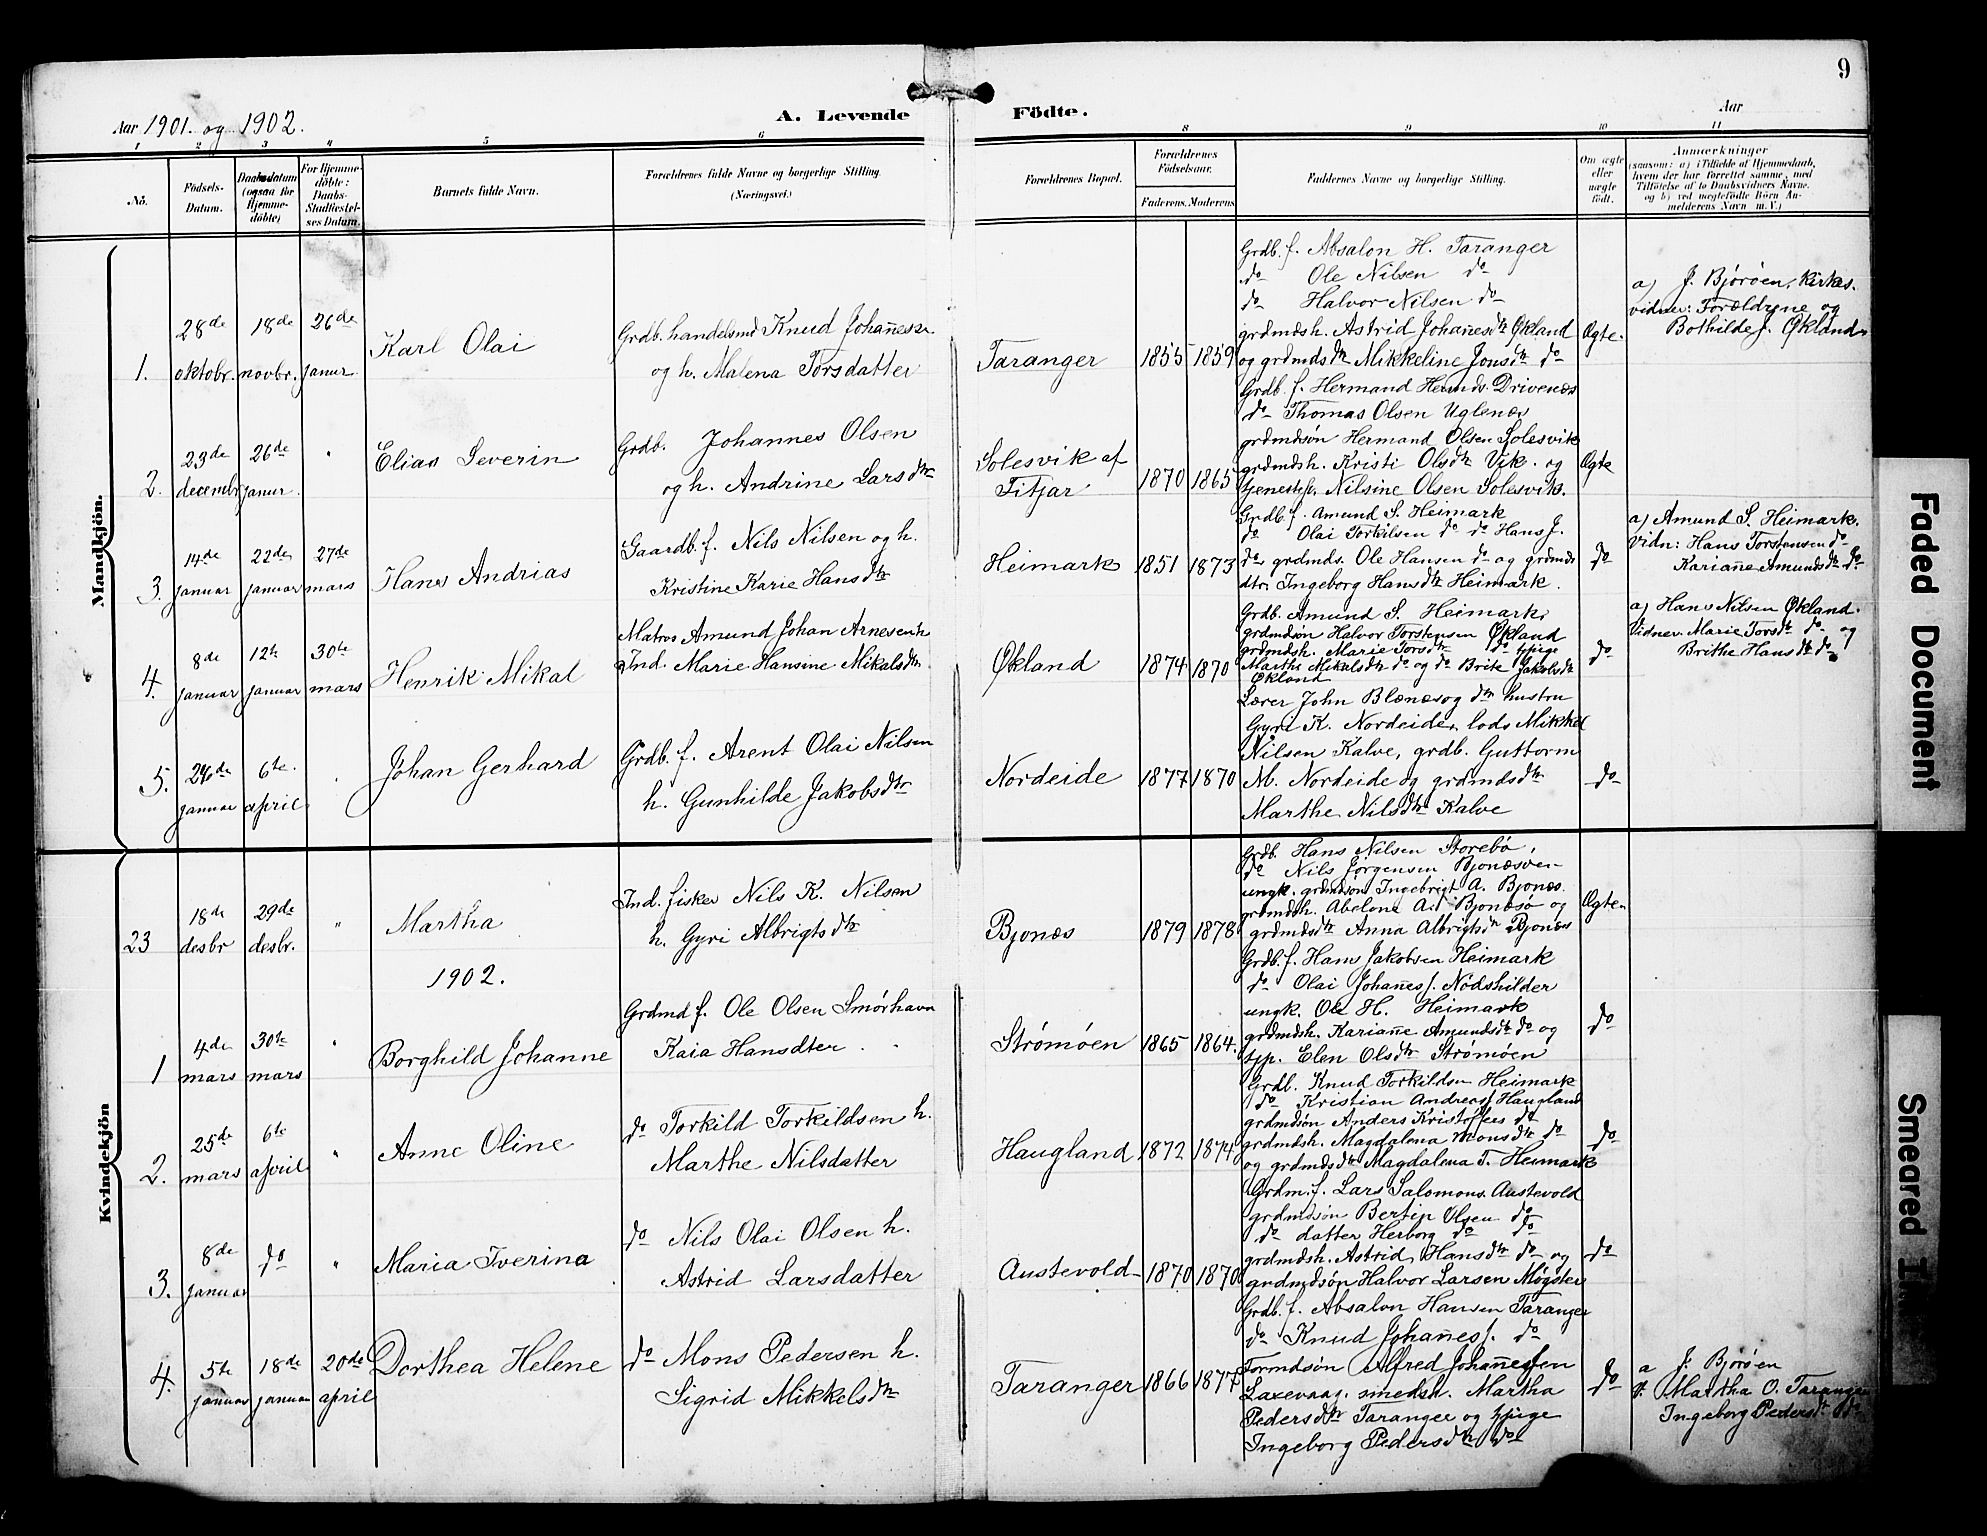 9
Aar 1901. og 1902.
A. Levende Födte.
Aar
1 2 3 4 5 6 8 9 10 11
No.
Födsels-Datum.
Daabsdatum (ogsaa for Hjemme-döbte)
For Hjemme-döbte: Daabs-Stadfæstel-ses Datum.
Barnets fulde Navn.
Forældrenes fulde Navne og borgerlige Stilling.
(Næringsvei.)
Forældrenes Bopæl.
Forældrenes Födselsaar.
Faderens. Moderens.
Faddernes Navne og borgerlige Stilling.
Om ægte eller uægte födt.
Anmærkninger
(saasom: a) i Tilfælde af Hjemmedaab,
hvem der har forrettet samme, med
Tilföielse af to Daabsvidners Navne,
og b) ved uægtefödte Börn An-
melderens Navn m. V.)
Mandkjön.
1.
28de oktobr.
18de novbr.
26de janur.
Karl Olai
Grdb. handelsmd Knud Johanesen
og h. Malena Torsdatter
Taranger
1855 1859
Grdb. f. Absalon H. Taranger
do Ole Nilsen do
do Halvor Nilsen do
grdmdsh. Astrid Johanesdtr Økland
og grdmdsdtr Mikkeline Jonsdtr do
Ægte.
a) J. Bjøröen, Kirkes.
vidner: Forældrene og
Bothilde J. Økland
2.
23de decembr
26de janur.
"
Elias Severin
Grdb. Johannes Olsen
og h. Andrine Larsdtr
Solesvik af
Fitjar
1870 1865
Grdb. f. Hermand Hermds. Drivenæs
do Thomas Olsen Uglenæs
grdmdsön Hermand Olsen Solesvik
grdmdsh. Kristi Olsdtr Vik. og
tjenestep. Nilsine Olsen Solesvik.
Ægte
3.
14de januar
22de januar
27de mars
Hans Andrias
Gaardb. f. Nils Nilsen og h.
Kristine Karie Hansdtr
Heimark
1851 1873
Grdb. f. Amund S. Heimark
do Olai Torkilsen do do Hans J.
do grdmds. Ole Hansen do og grdmds
dtr. Ingeborg Hansdtr Heimark.
do
a) Amund S. Heimark.
Vidn: Hans Torstensen do
Kariane Amundsdtr do
4.
8de januar
12te januar
30te mars
Henrik Mikal
Matros Amund Johan Arnesen h
Ind. Marie Hansine Mikalsdtr.
Økland
1874 1870
Grdb. Amund S. Heimark,
grdmdsön Halvor Torstensen Økland
grdmdsh. Marie Torsdtr do pige
Marthe Mikelsdtr do og do Brite Jakobsdtr
Økland
do
a) Hans Nilsen Økland.
Vidner. Marie Torsdtr do og
Brithe Hansdtr do
5.
26de januar
6te april
Johan Gerhard
Grdb. f. Arent Olai Nilsen
h. Gunhilde Jakobsdtr
Nordeide
1877 1870
Lærer John Blænes og dtr hustru
Gyri K. Nordeide, lods Mikkel
Nilsen Kalve, grdb. Guttorm
M. Nordeide og grdmdsdtr
Marthe Nilsdtr Kalve
do
Kvindekjön
23
18de desbr
29de desbr.
"
Martha
Ind. fisker Nils K. Nilsen
h. Gyri Albrigtsdtr
Bjonæs
1879 1878
Grdb. Hans Nilsen Storebø,
do Nils Jørgensen Bjonæsven
ungk. grdmdsön Ingebrigt A. Bjonæs
grdmdsh. Abelone A. Bjonæs og
grdmdsdtr Anna Albrigtsdtr Bjonæs
Ægte
1902.
1
4de mars
30te mars
"
Borghild Johanne
Grdmd f. Ole Olsen Smörhavn
Kaia Hansdter
Strømöen
1865 1864.
Grdb. f. Hans Jakobsen Heimark
do Olai Johanes f. Nodshilder
ungk. Ole H. Heimark
grdmdsh. Kariane Amundsdtr do og
tjp. Elen Olsdtr Strømöen
do
2.
25de mars
6te april
"
Anne Oline
do Torkild Torkildsen h.
Marthe Nilsdatter
Haugland
1872 1874
Grdb. Knud Torkildsen Heimark
do Kristian Andreas f. Haugland
grdmdsön Anders Kristoffers do
grdmdsh. Magdalena Monsdtr do
og grdmdsdtr Magdalena T. Heimark
do
3.
8de januar
do
"
Maria Iverina
do Nils Olai Olsen h.
Astrid Larsdatter
Austevold
1870 1870
Grdm. f. Lars Salomons. Austevold
grdmdsön Bertin Olsen do
do datter Herborg do do
grdmdsh. Astrid Hansdtr do og
grdmdsön Halvor Larsen Møgster
do
4.
5te januar
18de januar
20de april
Dorthea Helene
do Mons Pedersen h.
Sigrid Mikkelsdtr
Taranger
1866 1877
Grdb. f. Absalon Hansen Taranger
do Knud Johanes f. do
Formdsön Alfred Johannesen
Laxevaag. smedsh. Martha
Pedersdtr Taranger og pige
Ingeborg Pedersdtr do
do
a J. Bjøröen
v. Martha O. Taranger
Ingeborg Pedersdtr do
Faded Document
Smeared